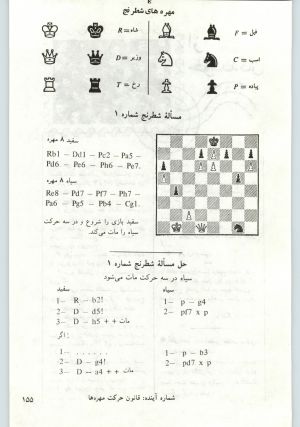 ۸
مهره های شطرنج
شاه = R
فیل = F
وزیر = D
اسب = C
رخ = T
پیاده = P
مسألهٔ شطرنج شماره ۱
سفید ۸ مهره
Rb1 – Dd1 – Pc2 – Pa5 –
Pd6 – Pe6 – Ph6 – Pe7.
سیاه ۸ مهره
Re8 – Pd7 – Pf7 – Ph7 –
Pa6 – Pg5 – Pb4 – Cg1.
سفید بازی را شروع و در سه حرکت
سیاه را مات می‌کند.
حل مسألهٔ شطرنج شماره ۱
سیاه در سه حرکت مات می‌شود
سفید
سیاه
1– R – b2!
1– p – g4
2– D – d5!
2– pf7 x p
3– D – h5 + + مات
اگر:
1– . . . . . .
1– p – b3
2– D – g4!
2– pd7 x p
3– D – a4 + + مات
شماره آینده: قانون حرکت مهره‌ها
۱۵۵